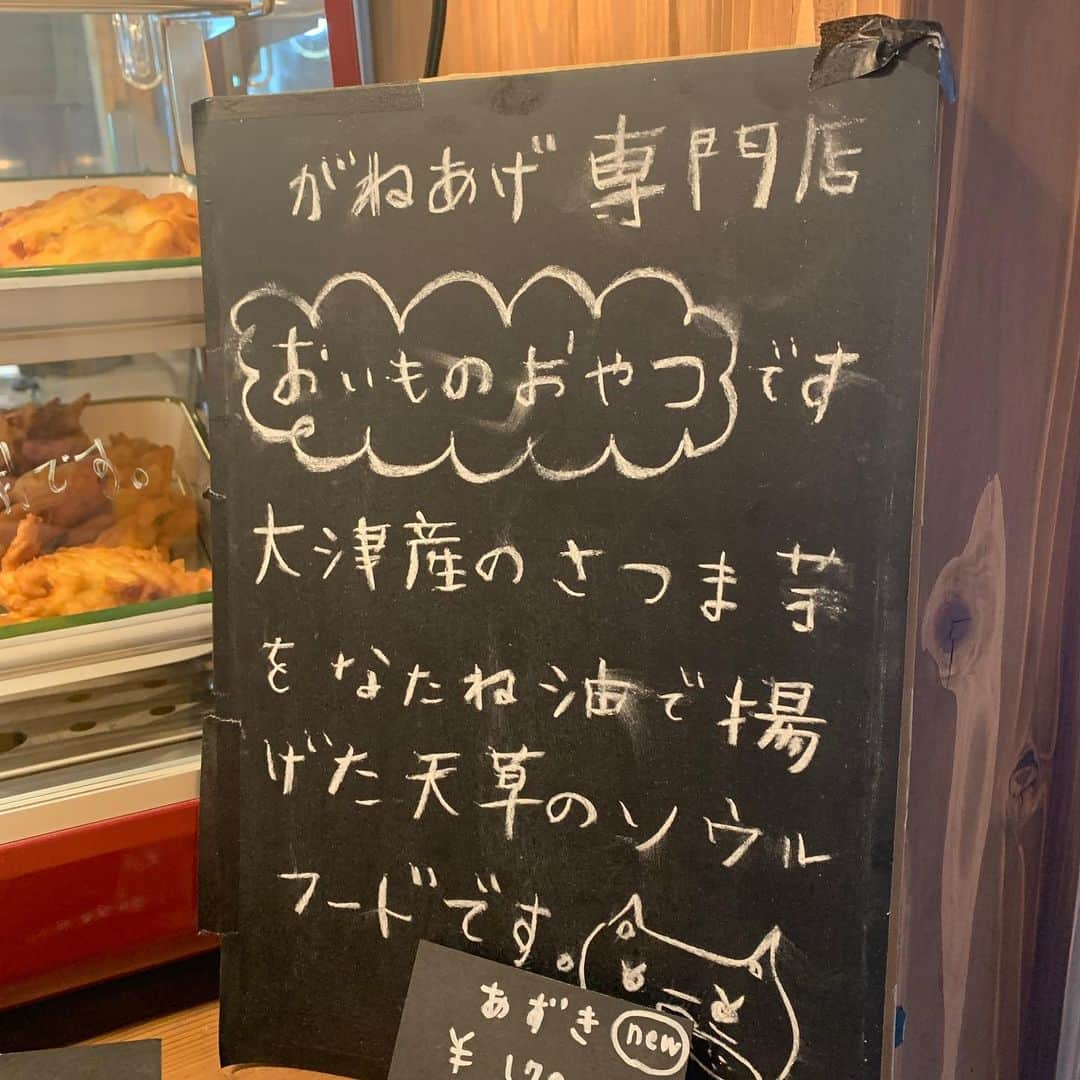 がねあげ専門店
おいものおやつです
大津産のさつま芋
をなたね油で揚
げた天草のソウル
フードです。
あずき new
¥
です。